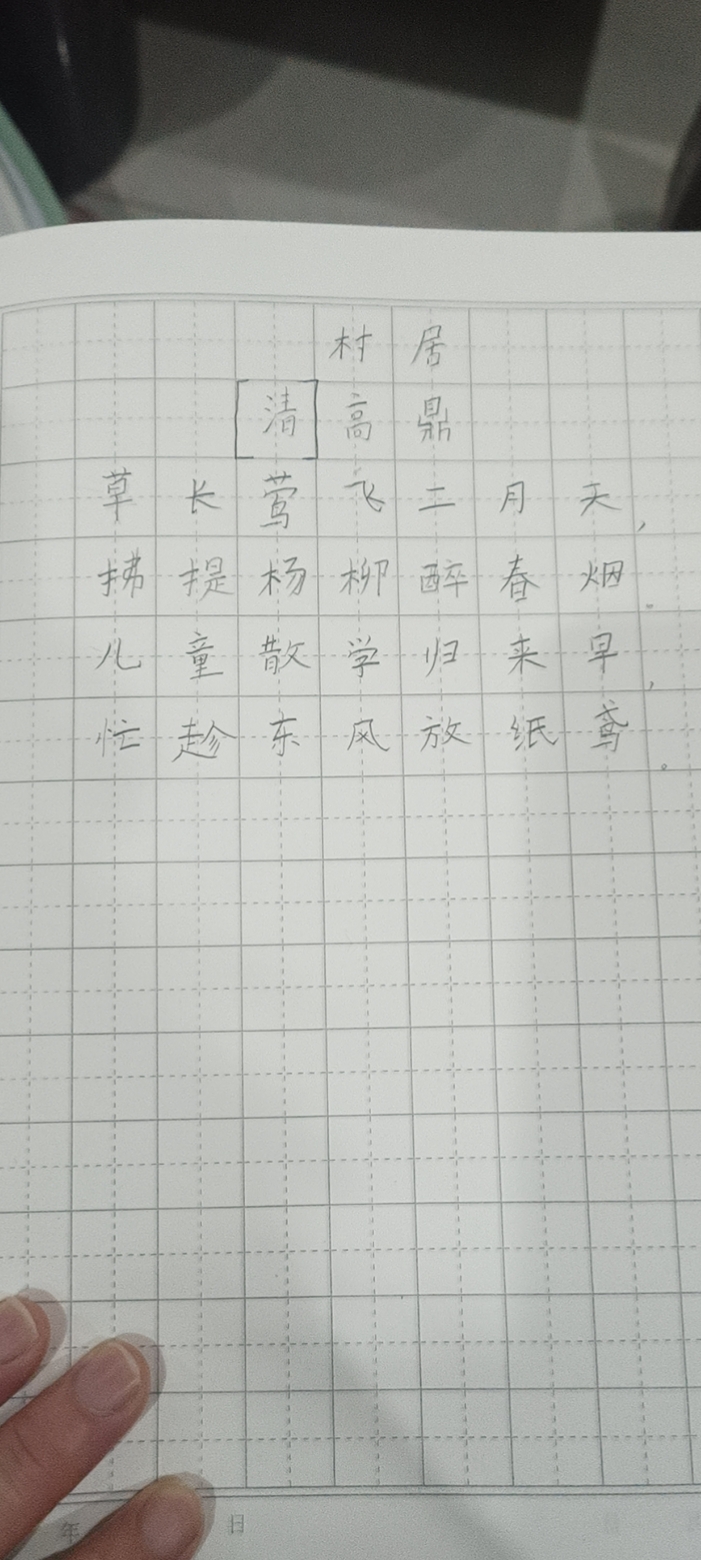 村居
[清]高鼎
草长莺飞二月天，
拂提杨柳醉春烟。
儿童散学归来早，
忙趁东风放纸鸢。
年 日